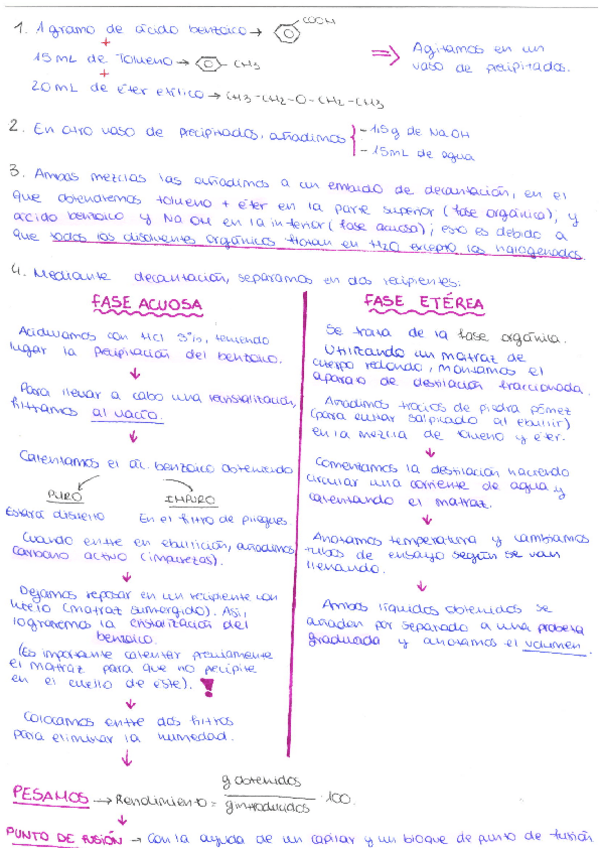 1. 1 gramo de ácido benzoico → COOH
+
15 mL de Tolueno → CH3
+
20 mL de éter etílico → CH3-CH2-O-CH2-CH3
⇒ Agitamos en un
vaso de precipitados.
2. En otro vaso de precipitados, añadimos
- 1,5g de NaOH
- 15mL de agua
3. Ambas mezclas las añadimos a un embudo de decantación, en el
que obtendremos tolueno + éter en la parte superior (fase orgánica), y
ácido benzoico y NaOH en la inferior (fase acuosa); esto es debido a
que todos los disolventes orgánicos flotan en H2O excepto los halogenados.
4. Mediante decantación, separamos en dos recipientes:
FASE ACUOSA
Acidulamos con HCl 3%, teniendo
lugar la precipitación del benzoico.
↓
Para llevar a cabo una recristalización,
filtramos al vacío.
↓
Calentamos el ác. benzoico obtenido
PURO IMPURO
Estará disuelto En el filtro de pliegues.
Cuando entre en ebullición, añadimos
carbono activo (impurezas).
↓
Dejamos reposar en un recipiente con
hielo (matraz sumergido). Así
lograremos la cristalización del
benzoico.
(Es importante calentar previamente
el matraz para que no precipite
en el cuello de éste). !
↓
Colocamos entre dos filtros
para eliminar la humedad.
↓
FASE ETÉREA
Se trata de la fase orgánica.
Utilizando un matraz de
cuerpo redondo, montamos el
aparato de destilación fraccionada.
Añadimos trocitos de piedra pómez
(para evitar salpicado al ebullir)
en la mezcla de tolueno y éter.
↓
Comentamos la destilación haciendo
circular una corriente de agua y
calentando el matraz.
↓
Anotamos temperatura y cambiamos
tubos de ensayo según se van
llenando.
↓
Ambos líquidos obtenidos se
añaden por separado a una probeta
graduada y anotamos el volumen.
PESAMOS → Rendimiento = g obtenidos / g introducidos · 100.
PUNTO DE FUSIÓN → Con la ayuda de un capilar y un bloque de punto de fusión